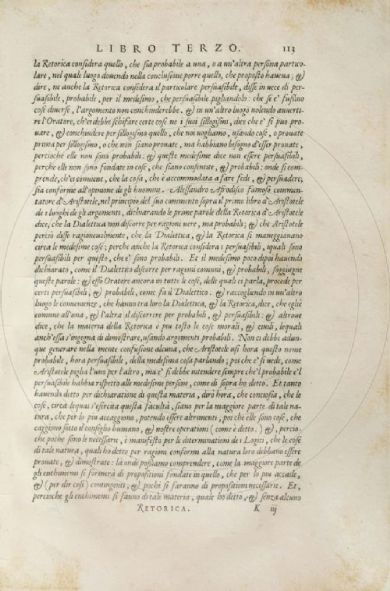 LIBRO TERZO. 113
la Retorica considera quello, che sia probabile a una, o a un'altra persona particu-
lare, nel quale luogo dovendo nella conclusione porre quello, che proposto haveva; &
dire, ne anche la Retorica considera il particolare persuasibile, disse in vece di per-
suasibile, probabile, per il medesimo, che persuasibile pigliandolo: che se e' fussino
cose diverse, l'argomento non conchiuderebbe. & in un'altro luogo volendo avverti-
re l'Oratore, ch'ei debbe schifare certe cose ne i suoi sillogismi, dice che e' si può pro-
vare, & conchiudere per sillogismo quello, che noi vogliamo, usando cose, o provate
prima per sillogismo, o che non siano provate, ma habbiano bisogno d'esser provate,
percioche elle non sono probabili, & queste medesime dice non essere persuasibili,
perche elle non sono fondate in cose, che siano confessate, & probabili: onde si com-
prende, ch'ei conosce, che la cosa, che è accommodata a fare fede, & persuadere,
sia conforme all'openione de gli huomini. Alessandro Afrodiseo famoso commen-
tatore d'Aristotele, nel principio del suo commento sopra il primo libro d'Aristotele
de i luoghi de gli argomenti, dichiarando le prime parole della Retorica d'Aristotele
dice, che la Dialettica non discorre per ragioni vere, ma probabili; & che Aristotele
perciò disse ragionevolmente, che la Dialettica, & la Retorica si maneggiavano
circa le medesime cose; perche anche la Retorica considera i persuasibili, iquali sono
persuasibili per questo, che e' sono probabili. Et il medesimo poco dipoi havendo
dichiarato, come il Dialettico discorre per ragioni comuni, & probabili, soggiugne
queste parole: & esso Oratore ancora in tutte le cose, delle quali ei parla, procede per
certi persuasibili, & probabili, come fa il Dialettico. & raccogliendo in un'altro
luogo le convenienze, che hanno tra loro la Dialettica, & la Retorica, dice, che egli è
comune all'una, & l'altra il discorrere per probabili, & persuasibili: & altrove
dice, che la materia della Retorica è piu tosto le cose morali, & civili, lequali
anch'essa s'ingegna di dimostrare, usando argomenti probabili. Non ci debbe adun-
que generare nella mente confusione alcuna, che Aristotele usi hora questo nome
probabile, hora persuasibile, della medesima cosa parlando; poi che e' si vede, come
Aristotele piglia l'uno per l'altro, ma e' si debbe intendere sempre che'l probabile e'l
persuasibile habbia rispetto alle medesime persone, come di sopra ho detto. Et tanto
havendo detto per dichiaratione di questa materia, dirò hora, che conciosia, che le
cose, circa lequali s'esercita questa facultà, siano per la maggiore parte di tale na-
tura, che per lo piu accaggiono, potendo essere altrimenti, poi che elle sono cose, che
caggiono sotto il consiglio humano, & nostre operationi (come è detto.) &, percio-
che poche sono le necessarie, è manifesto per le determinationi de i Logici, che le cose
di tale natura, quali ho detto per ragioni conformi alla natura loro debbano essere
provate, & dimostrate: là onde possiamo comprendere, come la maggiore parte de
gli enthimemi si formerà di propositioni fondate in quello, che per lo piu accade,
& (per dir così) contingenti, & pochi si faranno di propositioni necessarie. Et,
percioche gli enthimemi si fanno di tale materia, quale ho detto, & senza alcuno
RETORICA. K iij